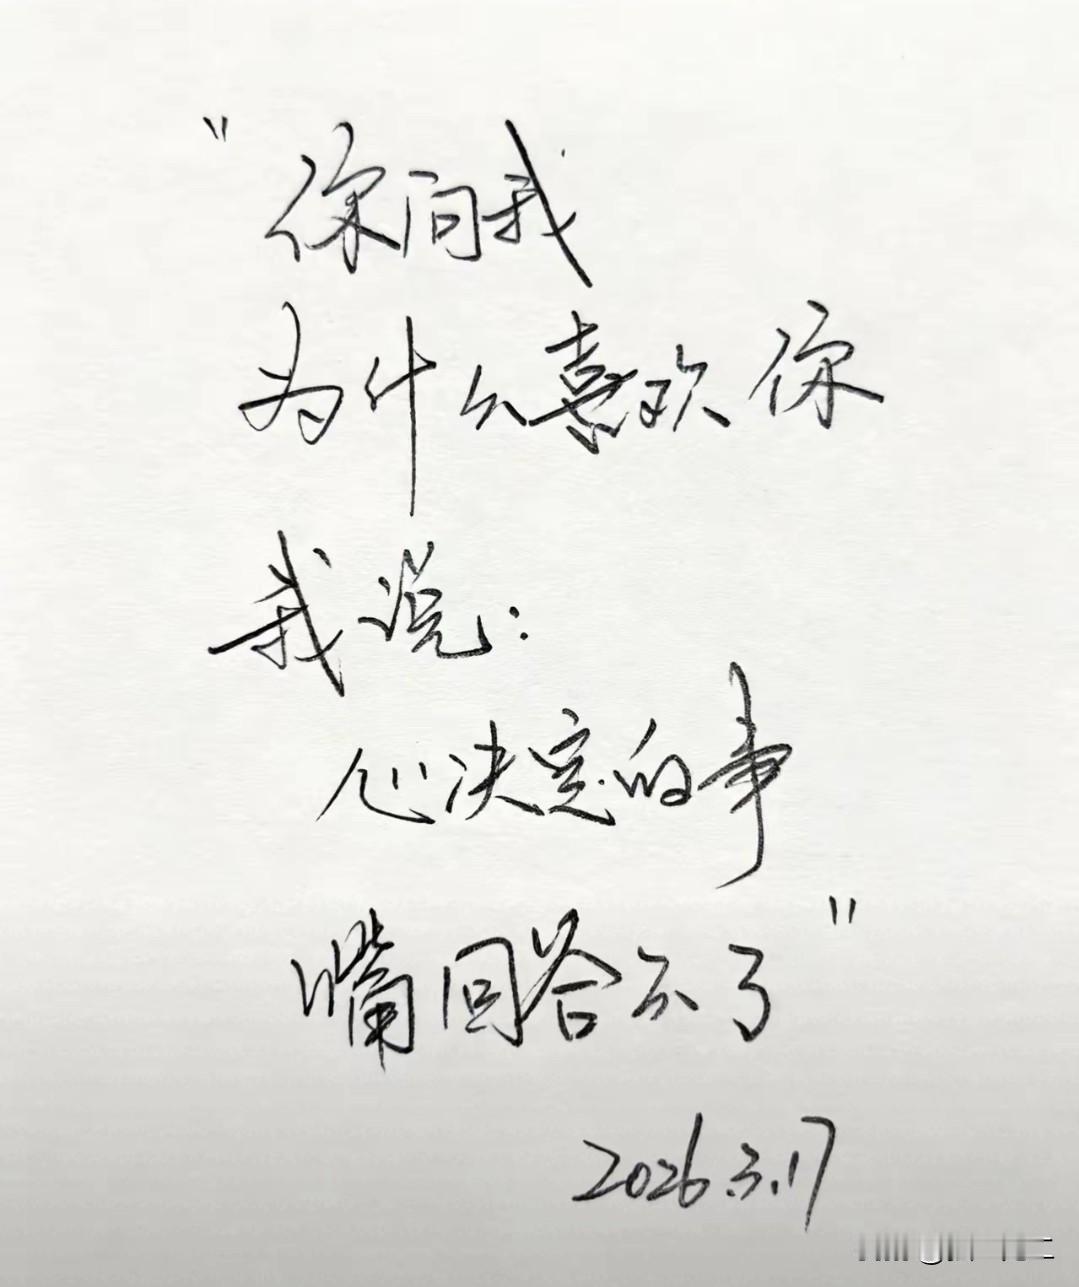 "你问我
为什么喜欢你
我说:
心决定的事
嘴回答不了"
2026.3.17